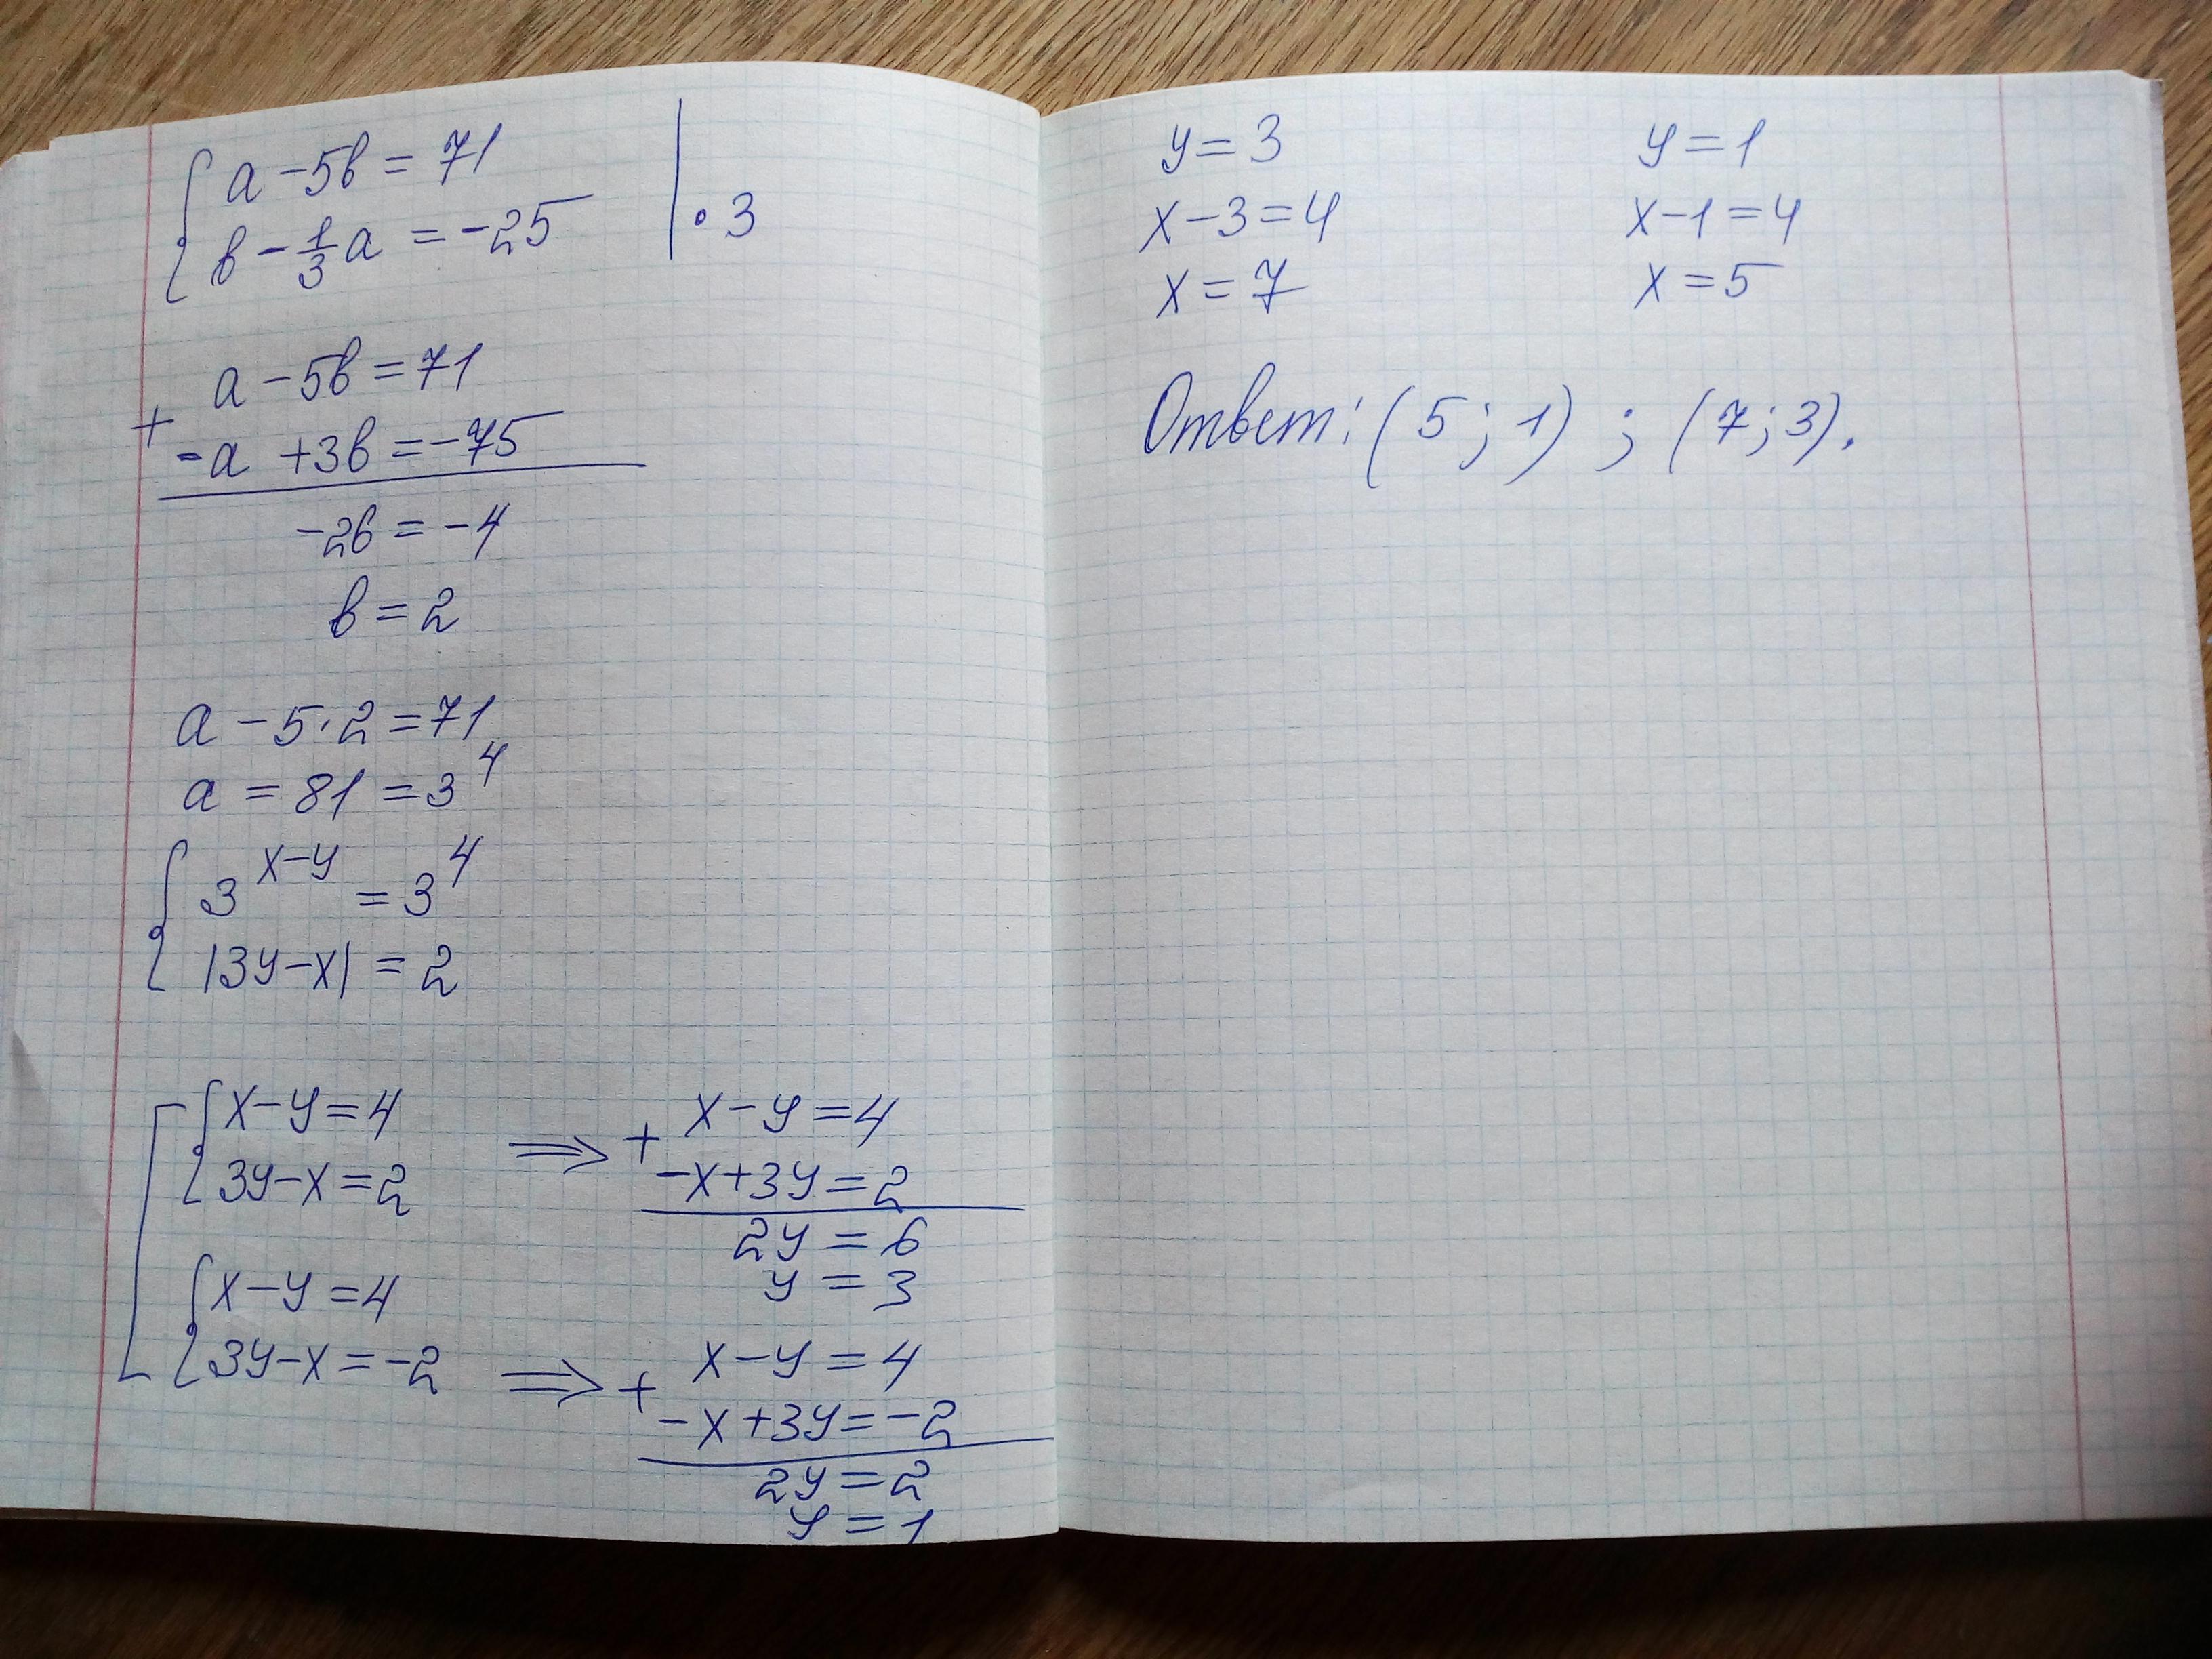 { a - 5b = 71 |
b - 1/3 a = -25 | · 3
a - 5b = 71
+
-a + 3b = -75
-2b = -4
b = 2
a - 5·2 = 71
a = 81 = 3^4
{ 3^(x-y) = 3^4
|3y-x| = 2
[ { x-y=4
3y-x=2
{ x-y=4
3y-x=-2
⟹ + x-y=4
-x+3y=2
2y=6
y=3
⟹ + x-y=4
-x+3y=-2
2y=2
y=1
y=3
x-3=4
x=7
y=1
x-1=4
x=5
Ответ: (5; 1) ; (7; 3).